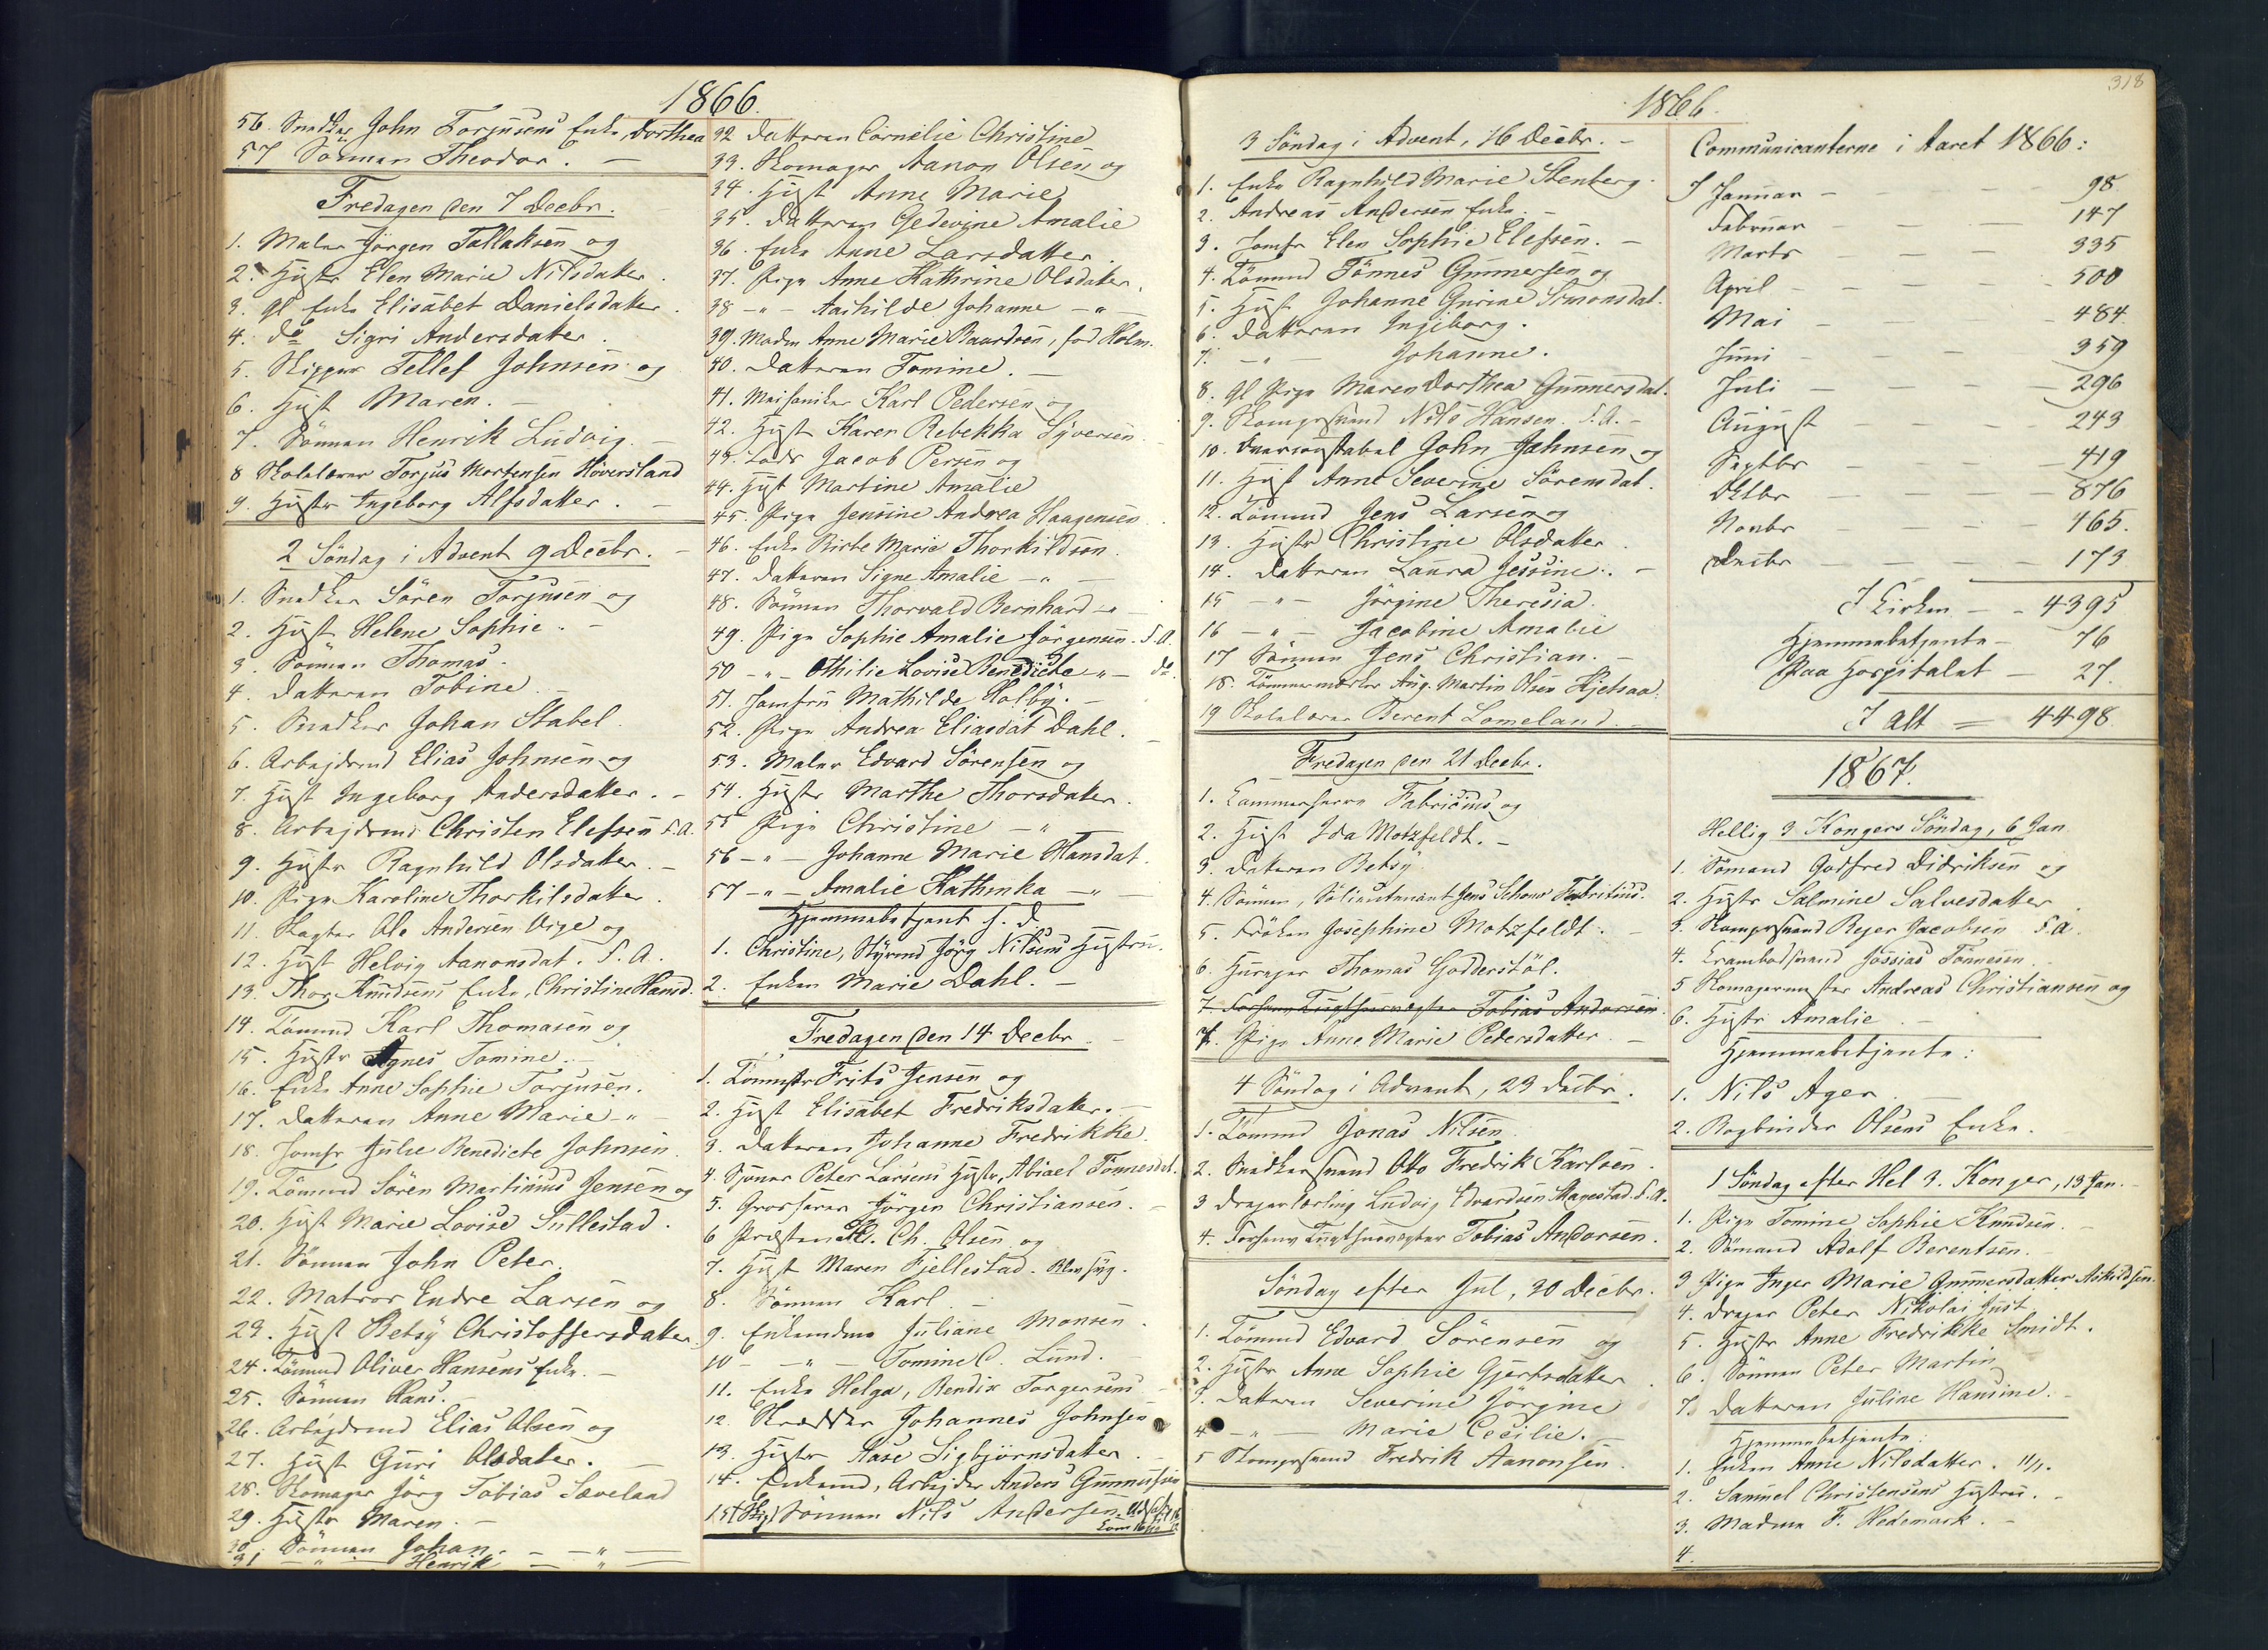 1866.
56. Snedker John Torjusens Enke, Dorthea
57 Sönnen Theodor. —
Fredagen den 7 Decbr.
1. Maler Jörgen Tallaksen og
2. Hustr Elen Marie Nilsdatter.
3. Gl Enke Elisabet Danielsdatter.
4. do Sigri Andersdatter.
5. Skipper Tellef Johnsen og
6. Hust Maren. —
7. Sönnen Henrik Ludvig. —
8 Skolelærer Torjus Mortensen Höversland
9. Hustr Ingeborg Alfsdatter. —
2 Söndag i Advent 9 Decbr. —
1. Snedker Sören Torjusen og
2. Hust Helene Sophie. —
3. Sönnen Thomas.
4. Datteren Tobine. —
5. Snedker Johan Stabel.
6. Arbejdsmd Elias Johnsen og
7. Hust Ingeborg Andersdatter. —
8. Arbejdsmd Christen Elefsen F.A.
9. Hustr Ragnhild Olsdatter. —
10. Pige Karoline Thorkilsdatter.
11. Ole Andersen Vige og
12. Hust Helvig Aanonsdat. F.A.
13. Thor Knudsens Enke, Christine Hansd.
14. Tömmd Karl Thomasen og
15. Hustr Agnes Tomine. —
16. Enke Anne Sophie Torjusen.
17. Datteren Anne Marie -"-
18. Jomfr Julie Benedicte Johnsen.
19. Tömmd Sören Martinius Jensen og
20. Hust Marie Lovise Sullestad.
21. Sönnen John Peter.
22. Matros Endre Larsen og
23. Hust Betsy Christoffersdatter
24. Tömmd Oliver Hansens Enke. —
25. Sönnen Hans. —
26. Arbejdsmd Elias Olsen og
27. Hust Guri Olsdatter. —
28. Skomager Jörg Tobias Sæveland
29. Hustr Maren. —
30. Sönnen Johan. — " —
31 — " — Henrik — " —
32 Datteren Cornelie Christine
33. Skomager Aanon Olsen og
34. Hust Anne Marie
35. Datteren Gedevine Amalie
36. Enke Anne Larsdatter.
37. Pige Anne Kathrine Olsdatter.
38 — " — Aashilde Johanne — " —
39. Madm Anne Marie Baardsen, fød Holm.
40. Datteren Tomine. —
41. Karl Pedersen og
42. Hust Karen Rebekka Syversen
43. Lods Jacob Persen og
44. Hust Martine Amalie
45. Pige Jensine Andrea Haagensen
46. Enke Birte Marie Thorkildsen.
47. Datteren Signe Amalie — " —
48. Sönnen Thorvald Bernhard — " —
49. Pige Sophie Amalie Jörgensen. F.A.
50 — " — Othilie Lovise Benedicte — " — do.
51. Jomfru Mathilde Holby. —
52. Pige Andrea Eliasdat Dahl. —
53. Maler Edvard Sörensen og
54. Hustr Marthe Thorsdatter.
55 Pige Christine — " —
56 — " — Johanne Marie Hansdat.
57 — " — Amalie Kathinka — " —
Hjemmebetjent s. d.
1. Christine, Styrmd Jörg Nilsens Hustru.
2. Enken Marie Dahl. —
Fredagen den 14 Decbr. —
1. Tömmstr Frits Jensen og
2. Hust Elisabet Fredriksdatter. —
3. Datteren Johanne Fredrikke.
4. Peter Larsens Hustr, Abiael Tönnesdat.
5. Grosserer Jörgen Christiansen. —
6 Præsten H. Ch. Olsen og
7. Hust Maren Fjellestad. Blev syg.
8. Sönnen Karl. —
9. Enkemdm Juliane Monsen.
10 — " — Tomine C. Lund.
11. Enke Helga, Bendix Torgersens —
12. Skrædder Johannes Johnsen
13. Hustr Aase Sigbjörnsdatter.
14. Enkemd, Arbejder Anders Gunnersen
15 (Syg) Sönnen Nils Andersen.
1866.
318
3 Söndag i Advent, 16 Decbr. —
1. Enke Ragnhild Marie Stenberg.
2. Andreas Andersen Enke. —
3. Jomfr Elen Sophie Elefsen. —
4. Tömmd Tönnes Gunnersen og
5. Hust Johanne Gurine Simonsdat.
6. Datteren Ingeborg.
7. — " — Johanne.
8. Gl Pige Maren Dorthea Gunnersdat.
9. Skomgrsvend Nils Hansen. F.A. —
10. John Johnsen og
11. Hust Anne Severine Sörensdat.
12. Tömmd Jens Larsen og
13. Hustr Christine Olsdatter.
14. Datteren Laura Jessine. —
15 — " — Jörgine Theresia.
16 — " — Jacobine Amalie
17 Sönnen Jens Christian. —
18. Tömmermærker Aug. Martin Olsen Kjetsaa.
19 Skolelærer Berent Lomeland. —
Fredagen den 21 Decbr.
1. Kammerherre Fabricius og
2. Hust Ida Motzfeldt. —
3. Datteren Betsy
4. Sönnen, Sölieutenant Jens Schow Fabritius.
5. Fröken Josephine Motzfeldt. —
6. Thomas Godderstöl.
7 Tobias Andersen
7. Pige Anne Marie Pedersdatter. —
4 Söndag i Advent, 23 Decbr.
1. Tömmd Jonas Nilsen.
2. Snedkersvend Otto Fredrik Karlsen.
3 Drejerlærling Ludvig Edvardsen F.A.
4. Tobias Andersen.
Söndag efter Jul, 30 Decbr.
1. Tömmd Edvard Sörensen og
2. Hustr Anne Sophie Gjertsdatter
3. Datteren Severine Jörgine
4 — " — Marie Cecilie. —
5 Skomgrsvend Fredrik Aanonsen.
Communicanterne i Aaret 1866:
I Januar — 98.
Februar — 147
Marts — 335
April — 500
Mai — 484.
Juni — 359
Juli — 296
August — 243
Septbr — 419
Oktbr — 876
Novbr — 465.
Decbr — 173
I Kirken — 4395
Hjemmebetjente — 76
Paa Hospitalet — 27.
I Alt = 4498.
1867.
Hellig 3 Kongers Söndag, 6 Jan.
1. Sömand Godfred Didriksen og
2. Hustr Salmine Salvesdatter
3. Skomgrsvend Rejer Jacobsen F.A.
4. Krambodsvend Jossias Tönnesen.
5 Skomagermester Andreas Christiansen og
6. Hustr Amalie
Hjemmebetjente:
1. Nils Ager. —
2. Bogbinder Olsens Enke.
1 Söndag efter Hel 3. Konger, 13 Jan. —
1. Pige Tomine Sophie Knudsen. —
2. Sömand Adolf Berentsen.
3 Pige Inger Marie Gunnersdatter Askildsen.
4. Drejer Peter Nikolai Just
5. Hustr Anne Fredrikke Smidt.
6. Sönnen Peter Martin
7. Datteren Juline Hansine. —
Hjemmebetjente:
1. Enken Anne Nilsdatter. 11/1.
2. Samuel Christensens Hustru. —
3. Madme F. Hedemark. —
4.